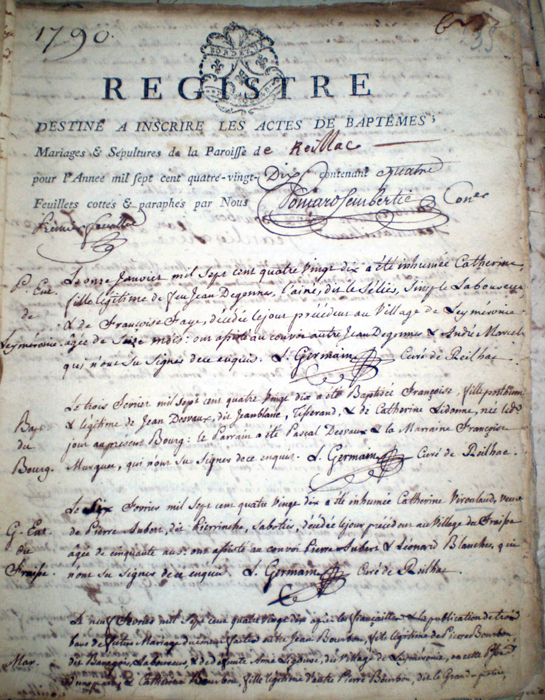 1790.
39
REGISTRE
DESTINÉ A INSCRIRE LES ACTES DE BAPTÊMES,
Mariages & Sépultures de la Paroisse de Reillac
pour l'Année mil sept cent quatre-vingt-Dix contenant quatre
Feuillets cottés & paraphés par Nous
P. Ent. Le onze Janvier mil sept cent quatre vingt dix a été inhumée Catherine,
de fille légitime de feu Jean Degonne, l'ainé, dit le Sélies, Simple Laboureur
& de Françoise Faye, décédée le jour précédent au Village de Leymeronie
Leymeronie. agée de Seize mois: ont assisté au convoi autre Jean Degonne & André Marcel
qui n'ont su Signer de ce enquis. L. Germain Curé de Reilhac.
Le trois Fevrier mil sept cent quatre vingt dix a été Baptisée Françoise, fille
Bap. & légitime de Jean Desvaux, dit Jeanblanc, Tisserand, & de Catherine Lidonne, née led.
du jour au present Bourg: le Parrain a été Pascal Desvaux & la Marraine Françoise
Bourg. Murguet, qui n'ont su Signer de ce enquis. L. Germain Curé de Reilhac.
Le Six Fevrier mil sept cent quatre vingt dix a été inhumée Catherine
G. Ent. de Pierre Aubert, dit Pierrinche, Sabotier, décédée le jour précédent au Village du Fraisse
du agée de cinquante ans: ont assisté au convoi Pierre Aubert & Léonard Blanchet, qui
Fraisse. n'ont su Signer de ce enquis. L. Germain Curé de Reilhac.
Le neuf Fevrier mil sept cent quatre vingt dix après les fiançailles & la publication de trois
bans de futur Mariage entre Jean Bourbon, fils légitime de Pierre Bourbon
Mar. Laboureur & de défunte Anne
& Catherine Bourbon, fille légitime d'autre Pierre Bourbon, dit le Grand